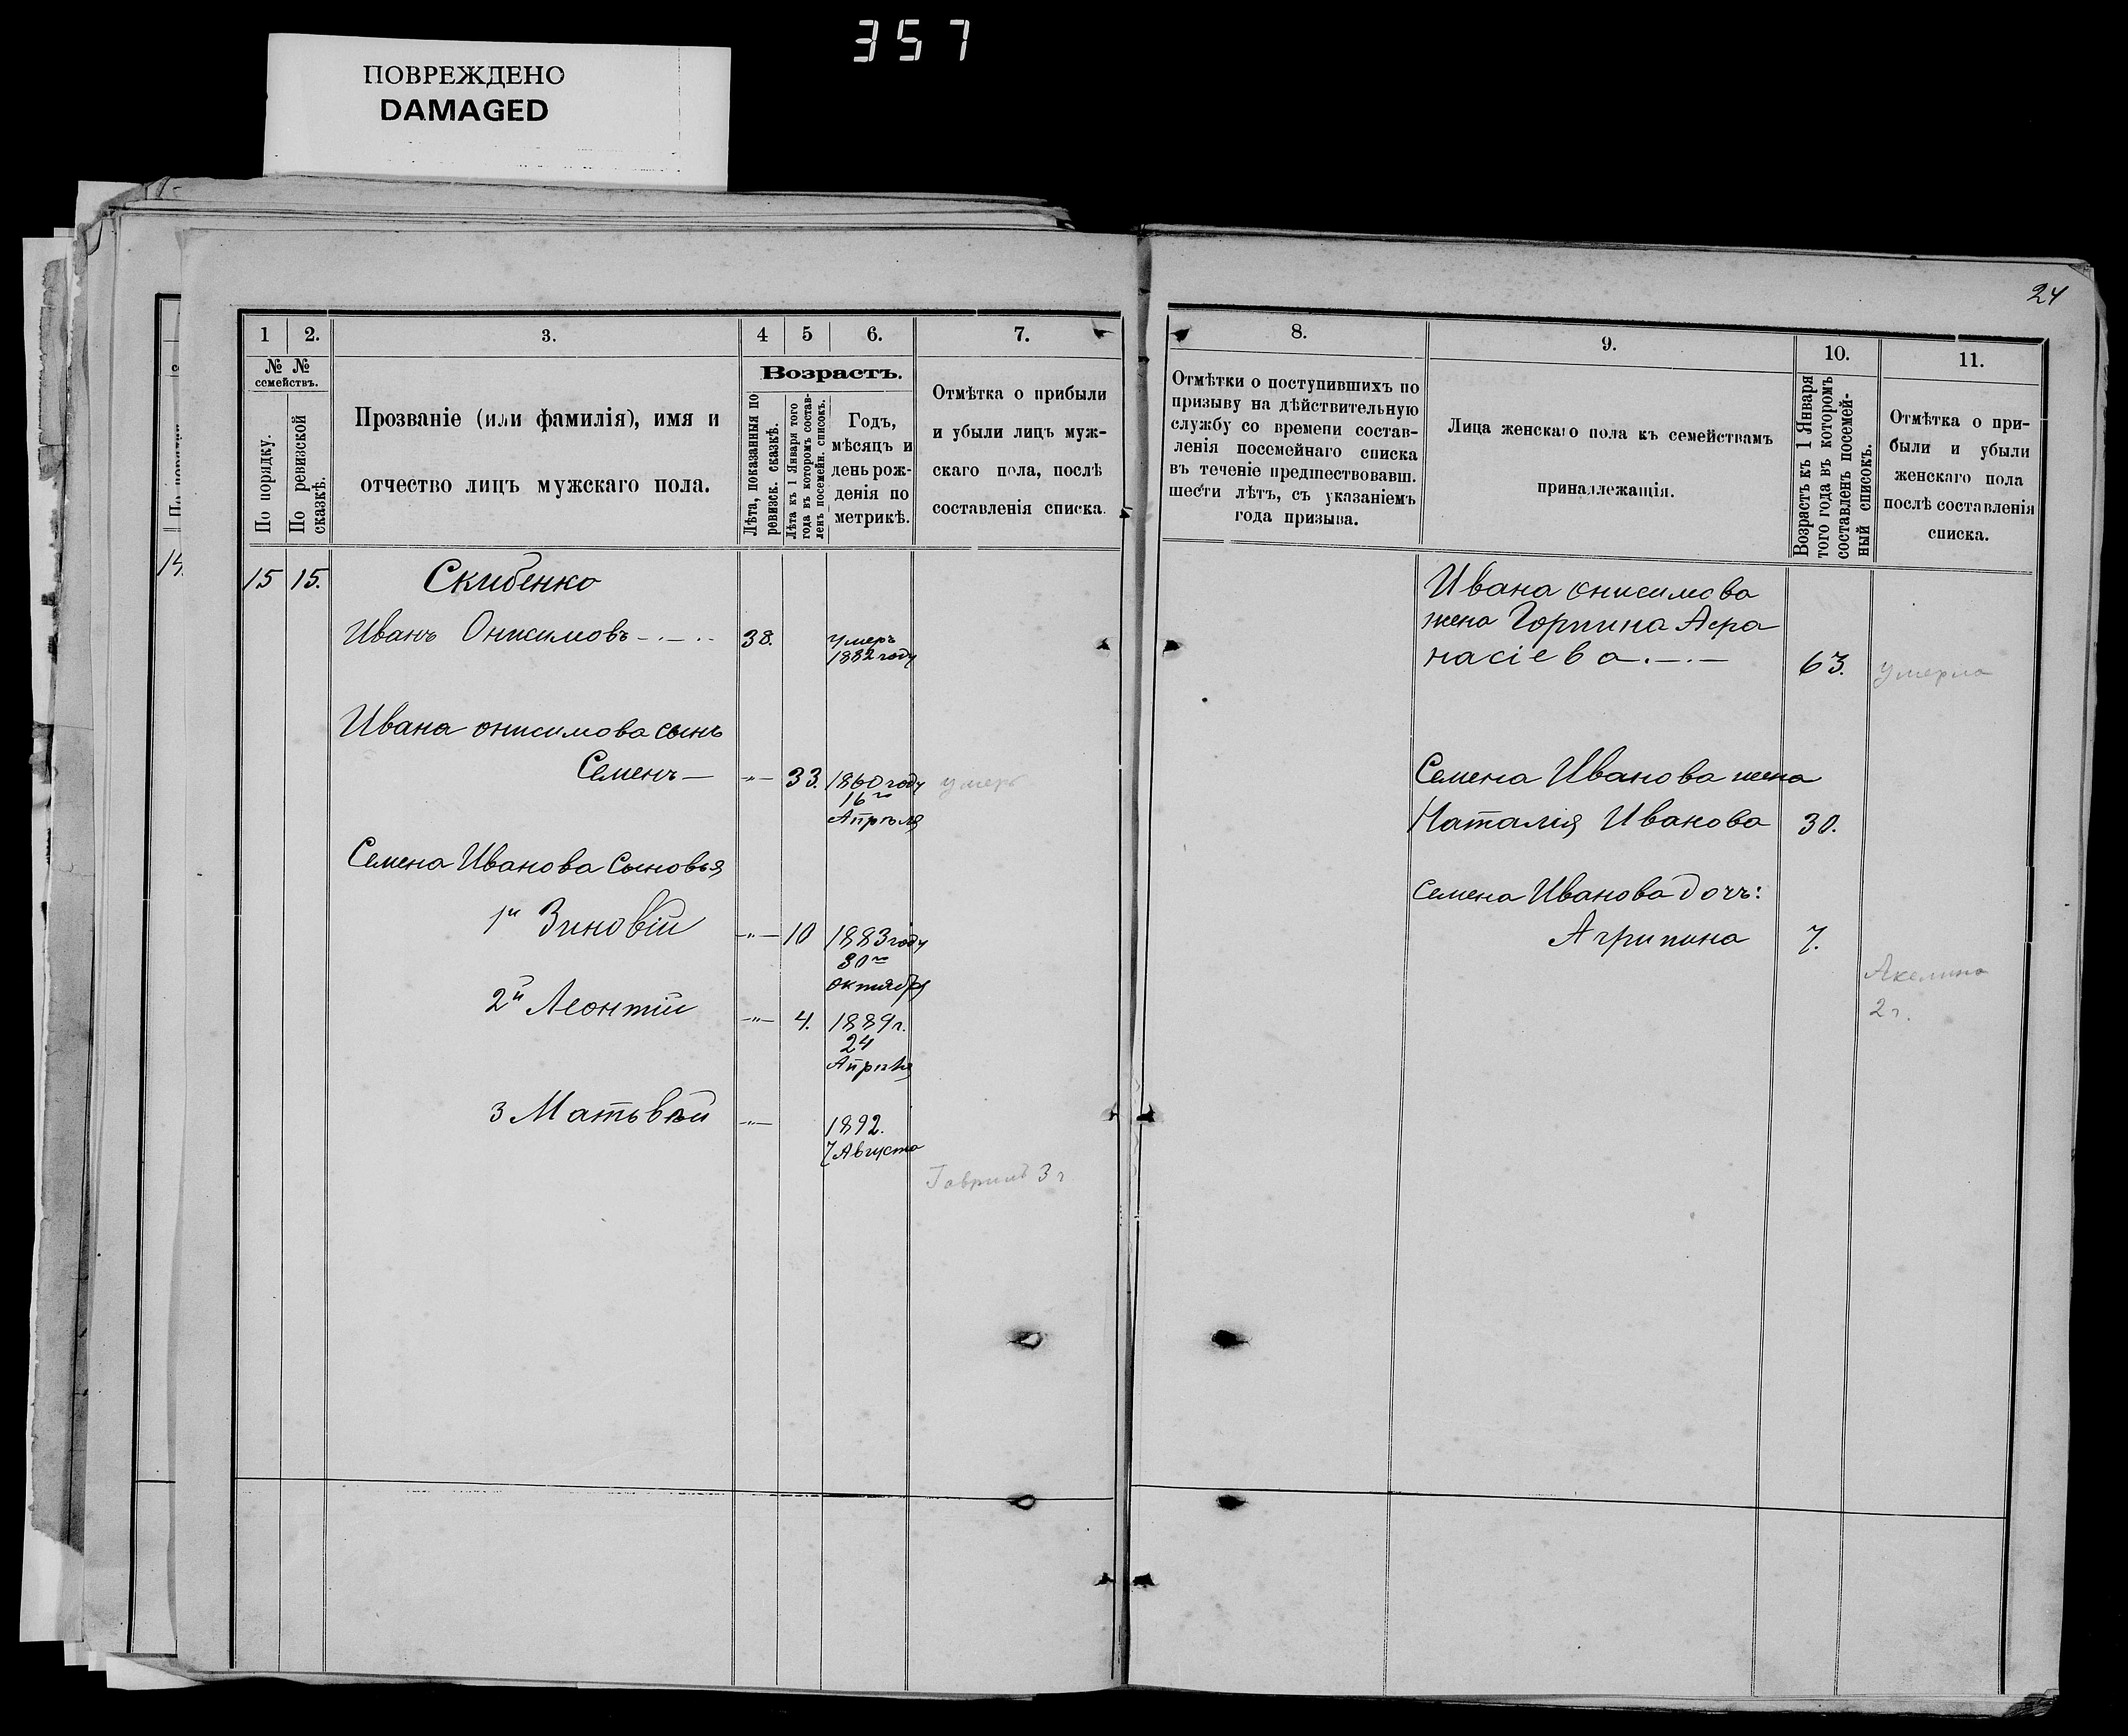 357
ПОВРЕЖДЕНО
DAMAGED
24
1
2.
3.
4
5
6.
7.
№ №
семействъ.
По порядку.
По ревизской
сказкѣ.
Прозваніе (или фамилія), имя и
отчество лицъ мужскаго пола.
Возрастъ.
Лѣта, показанныя по
ревизск. сказкѣ.
Лѣта къ 1 Января того
года въ которомъ состав-
ленъ посемейн. списокъ.
Годъ,
мѣсяцъ и
день рож-
денія по
метрикѣ.
Отмѣтка о прибыли
и убыли лицъ муж-
скаго пола, послѣ
составленія списка.
8.
9.
10.
11.
Отмѣтки о поступившихъ по
призыву на дѣйствительную
службу со времени состав-
ленія посемейнаго списка
въ теченіе предшествовавш.
шести лѣтъ, съ указаніемъ
года призыва.
Лица женскаго пола къ семействамъ
принадлежащія.
Возрастъ къ 1 Января
того года въ которомъ
составленъ посемей-
ный списокъ.
Отмѣтка о при-
были и убыли
женскаго пола
послѣ составленія
списка.
14.
15 15. Скибенко
Иванъ Онисимовъ 38. умеръ
1882 году
Ивана онисимова сынъ
Семенъ — 33. 1860 году умеръ
16го
Апрѣля
Семена Иванова сыновья
1й Зиновій 10 1883 году
30го
октября
2й Леонтій 4. 1889 г.
24
Апрѣля
3 Матьвѣй 1892.
7 Августа
Гавриилъ 3 г
Ивана онисимова
жена Горпина Афа
насіева 63. умерла
Семена Иванова жена
Наталія Иванова 30.
Семена Иванова дочъ:
Агрипина 7.
Акелина
2 г.